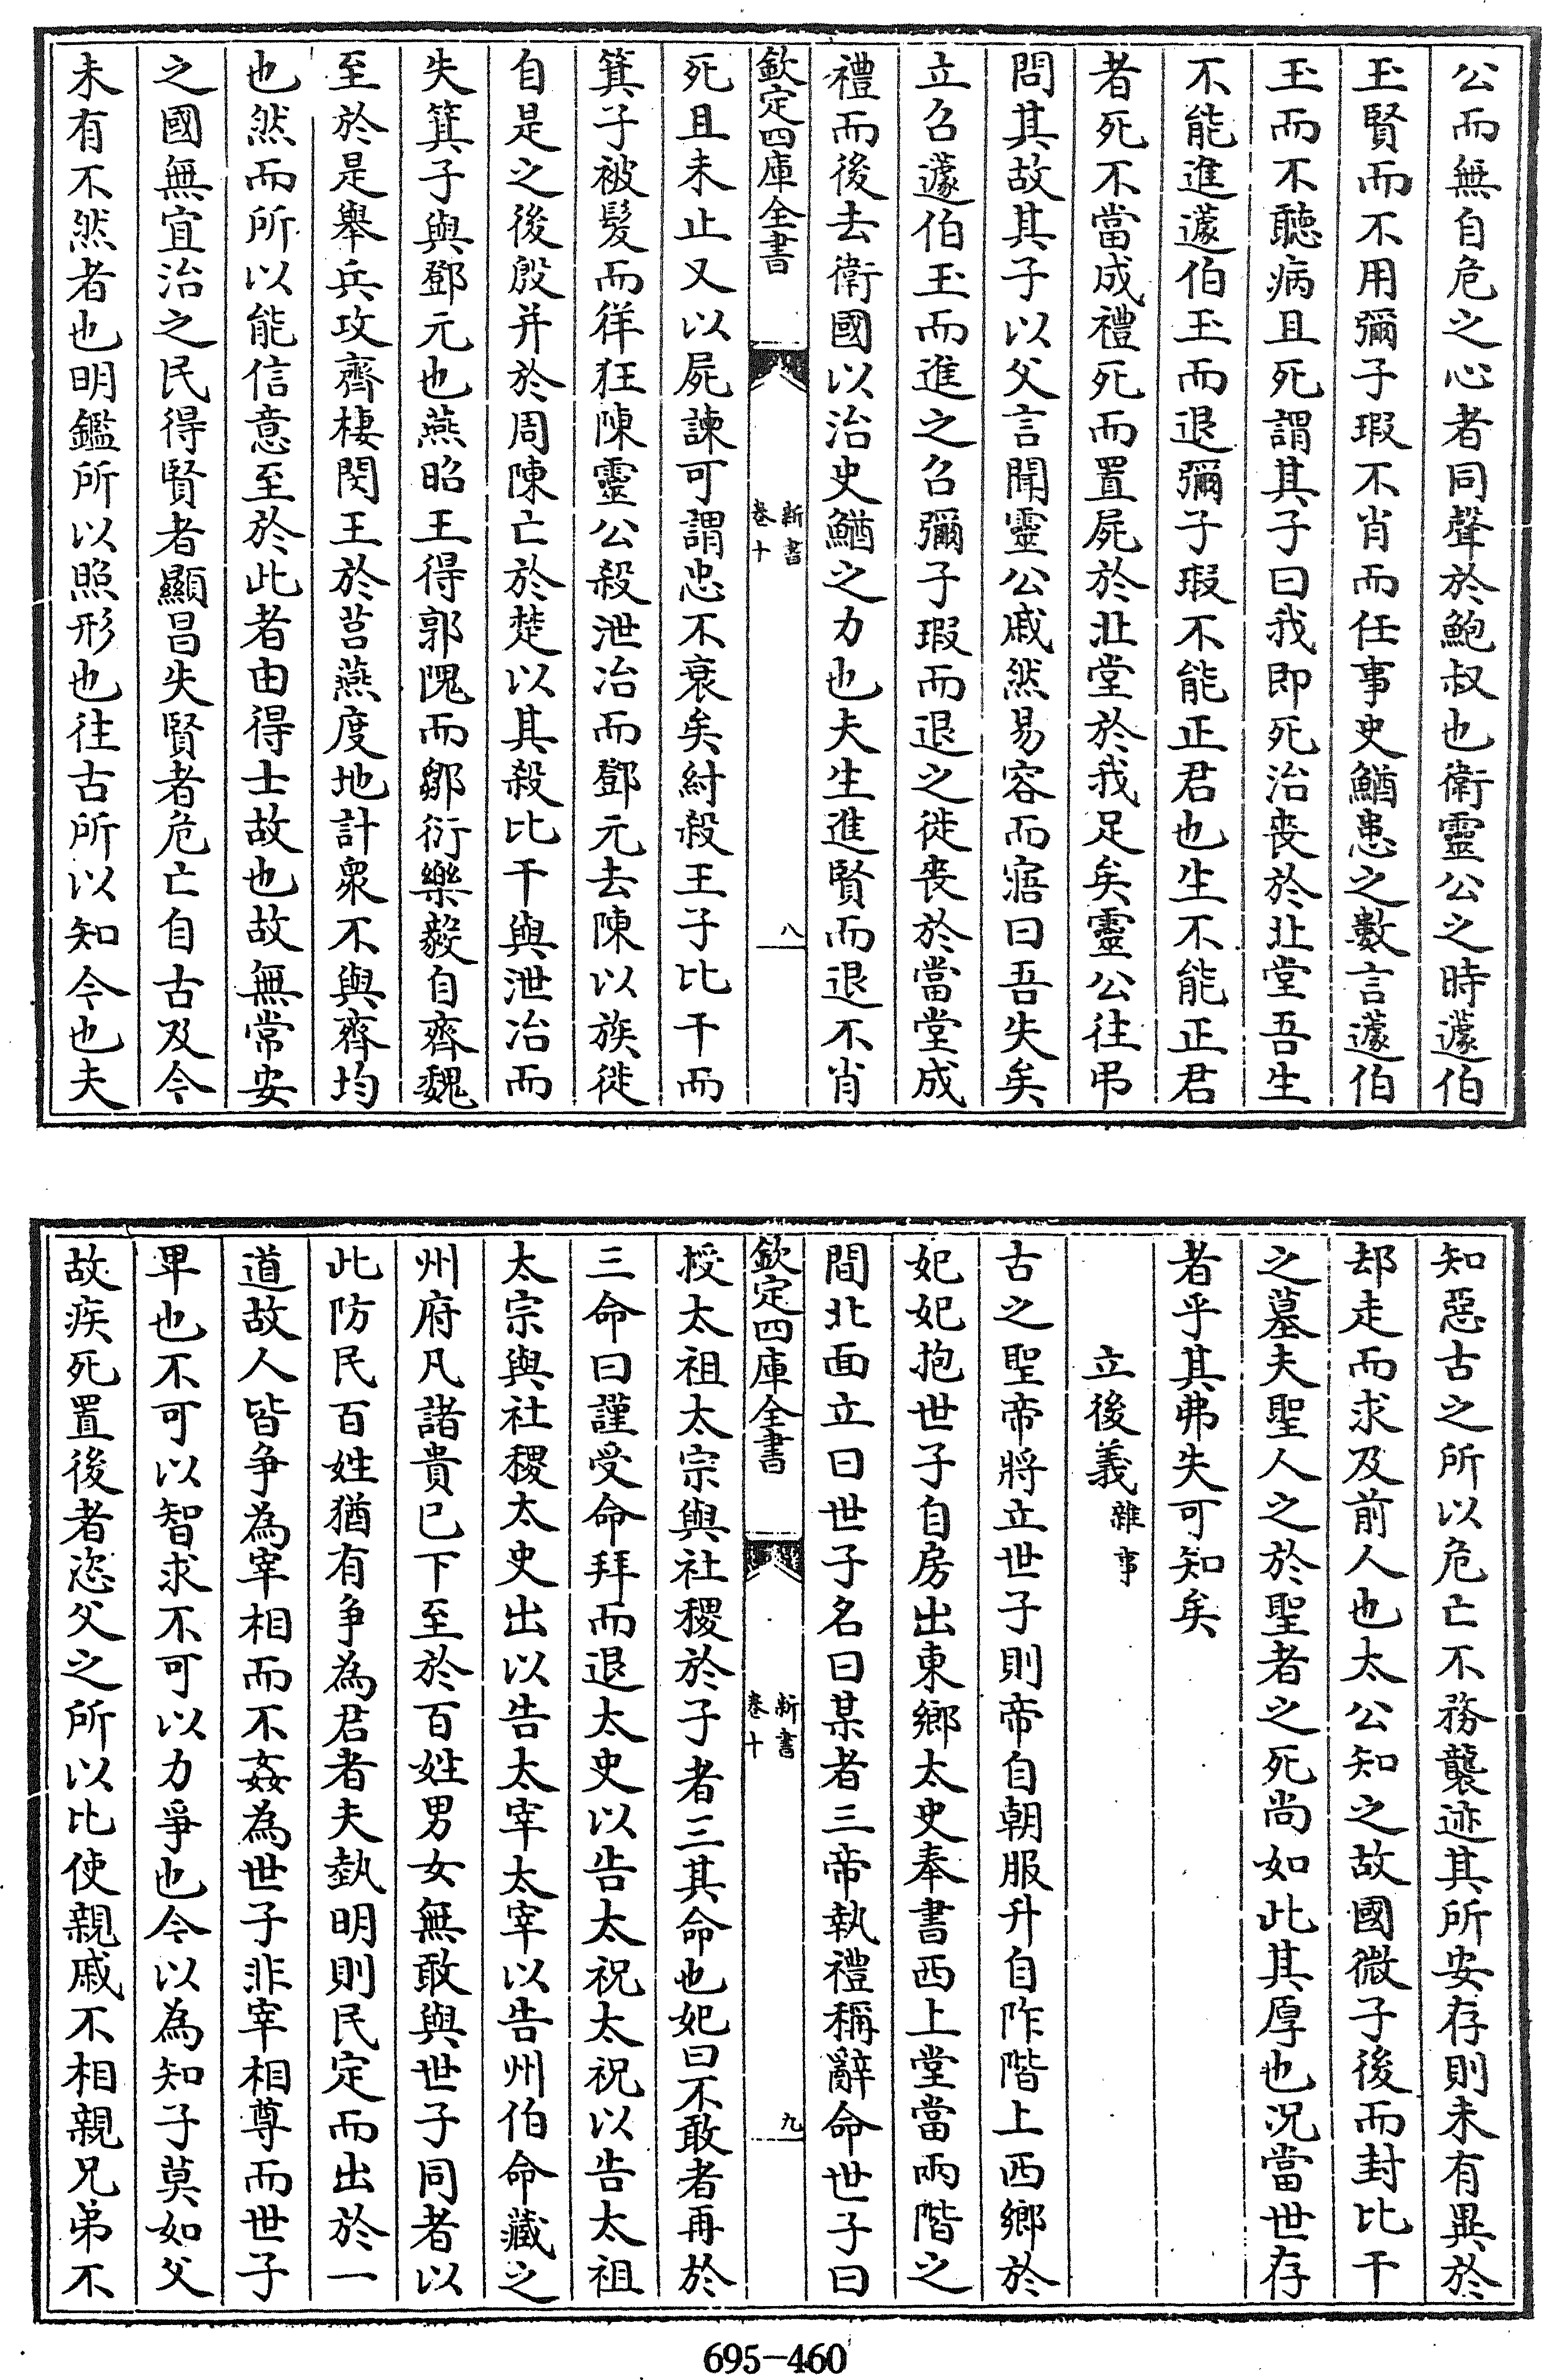 公而無自危之心者同聲於鮑叔也衛靈公之時蘧伯
玉賢而不用彌子瑕不肖而任事史鰌患之數言蘧伯
玉而不聽病且死謂其子曰我即死治丧於北堂吾生
不能進蘧伯玉而退彌子瑕不能正君也生不能正君
者死不當成禮死而置屍於北堂於我足矣靈公往弔
問其故其子以父言聞靈公戚然易容而寤曰吾失矣
立召蘧伯玉而進之召彌子瑕而退之徙丧於當堂成
禮而後去衛國以治史鰌之力也夫生進賢而退不肖
欽定四庫全書
新書
卷十
八
死且未止又以屍諫可謂忠不衰矣紂殺王子比干而
箕子被髮而徉狂陳靈公殺泄冶而鄧元去陳以族徙
自是之後殷并於周陳亡於楚以其殺比干與泄冶而
失箕子與鄧元也燕昭王得郭隗而鄒衍樂毅自齊魏
至於是舉兵攻齊棲閔王於莒燕度地計衆不與齊均
也然而所以能信意至於此者由得士故也故無常安
之國無宜治之民得賢者顯昌失賢者危亡自古及今
未有不然者也明鑑所以照形也往古所以知今也夫
知惡古之所以危亡不務襲迹其所安存則未有異於
却走而求及前人也太公知之故國微子後而封比干
之墓夫聖人之於聖者之死尚如此其厚也况當世存
者乎其弗失可知矣
立後義雜事
古之聖帝將立世子則帝自朝服升自阼階上西鄉於
妃妃抱世子自房出東鄉太史奉書西上堂當兩階之
間北面立曰世子名曰某者三帝執禮稱辭命世子曰
欽定四庫全書
新書
卷十
九
授太祖太宗與社稷於子者三其命也妃曰不敢者再於
三命曰謹受命拜而退太史以告太祝太祝以告太祖
太宗與社稷太史出以告太宰太宰以告州伯命藏之
州府凡諸貴已下至於百姓男女無敢與世子同者以
此防民百姓猶有争為君者夫埶明則民定而出於一
道故人皆争為宰相而不姦為世子非宰相尊而世子
卑也不可以智求不可以力爭也今以為知子莫如父
故疾死置後者恣父之所以比使親戚不相親兄弟不
695-460